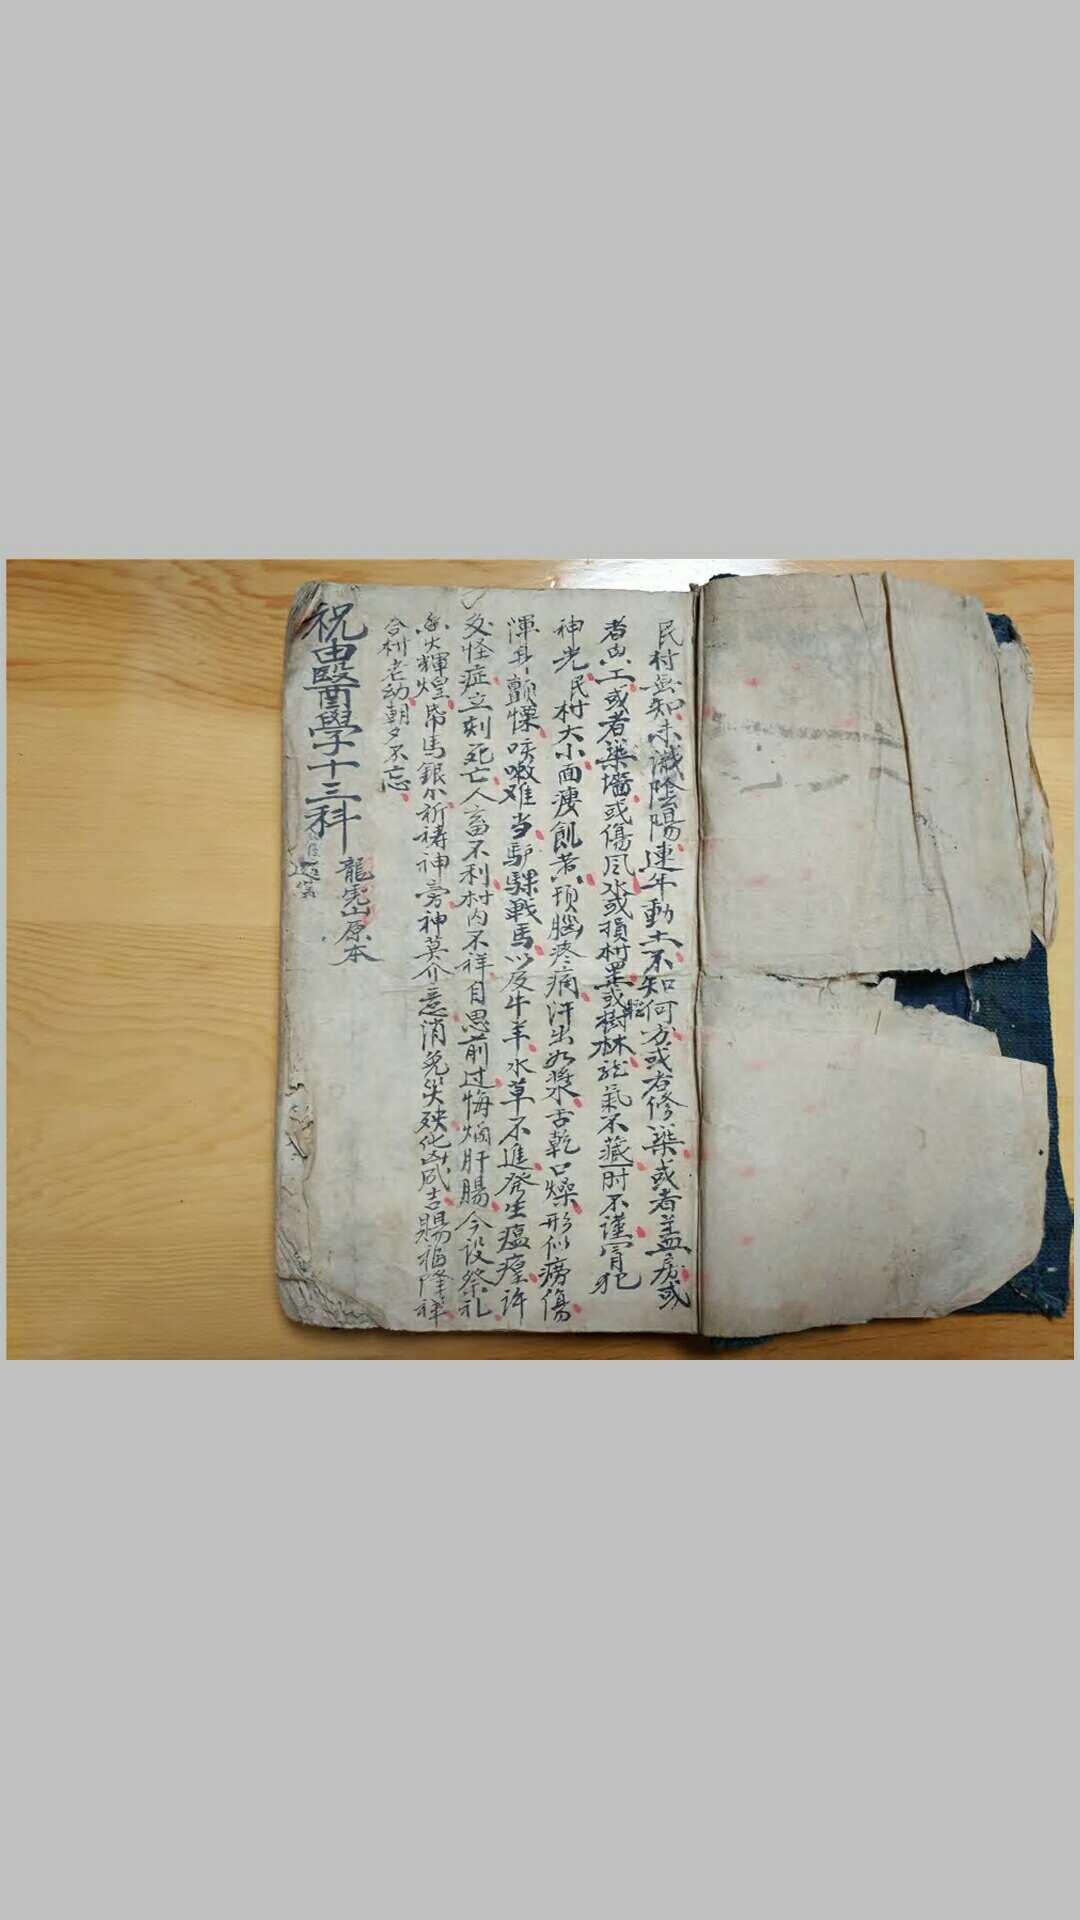 民村無知未識陰陽連年動土不知何方或者修築或者盖房或
者凶工或者築墻或傷风水或損村罡或樹林龙氣不藏一时不谨冒犯
神光民村大小面瘦飢羔頂腦疼痛汗出如漿舌乾口燥形似痨傷
渾身顫慄咳嗽难当驴騾戰馬以及牛羊水草不進發生瘟瘽许
多怪症立刻死亡人畜不利村内不祥自思前过悔煩肝腸今设祭礼
香火輝煌帋馬銀尒祈祷神旁神莫介意消免灾殃化凶成吉賜福降祥
合村老幼朝夕不忘
祝由醫學十三科
龍虎山原本